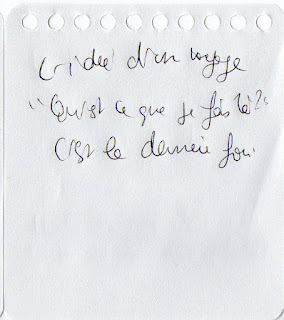 L'idée d'un voyage
"Qu'est ce que je fais là ?"
C'est la dernière fois